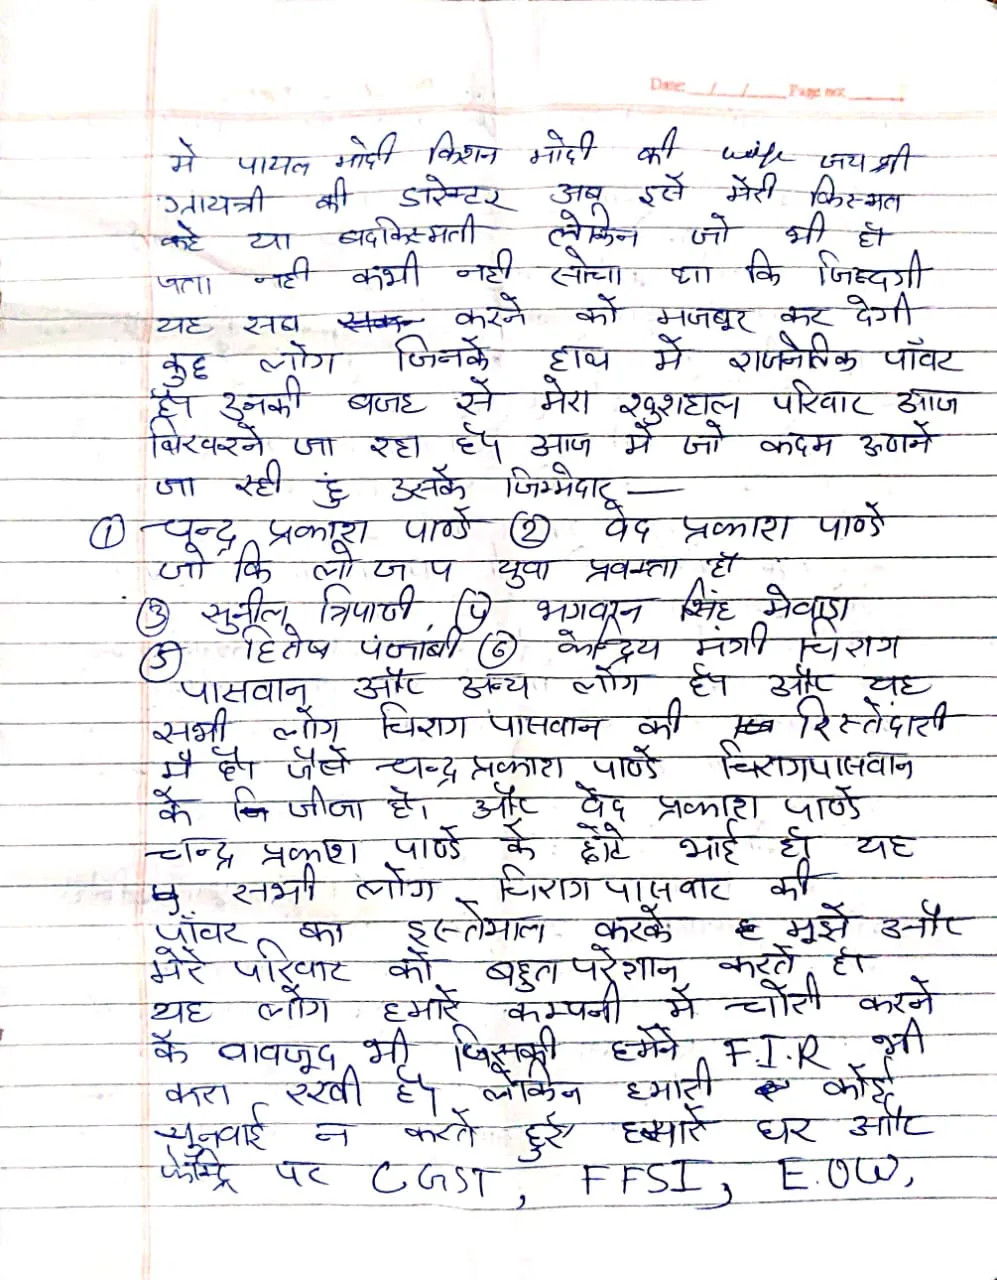 Date: __/__/____ Page no: ______
मे पायल मोदी किशन मोदी की wife जय श्री
गायत्री की डारेक्टर अब इसे मेरी किस्मत
कहे या बदकिस्मती लेकिन जो भी हो
पता नही कभी नही सोचा था कि जिन्दगी
यह सब करने को मजबूर कर देगी
कुछ लोग जिनके हाथ में राजनेतिक पॉवर
है। उनकी बजह से मेरा खुशहाल परिवार आज
बिखरने जा रहा है। आज में जो कदम उठाने
जा रही हुं उसके जिम्मेदार —
① चन्द्र प्रकाश पाण्डे ② वेद प्रकाश पाण्डे
जो कि लो ज प युवा प्रवक्ता है
③ सुनील त्रिपाठी, ④ भगवान सिंह मेवाडा
⑤ हितेष पंजाबी ⑥ केन्द्रिय मंत्री चिराग
पासवान और अन्य लोग है। और यह
सभी लोग चिराग पासवान की रिस्तेदारी
मै है। जैसे चन्द्र प्रकाश पाण्डे चिराग पासवान
के जीजा है। और वेद प्रकाश पाण्डे
चन्द्र प्रकाश पाण्डे के छोटे भाई है। यह
सभी लोग चिराग पासवाट की
पॉवर का इस्तेमाल करके मुझे और
मेरे परिवार को बहुत परेशान करते है।
यह लोग हमारे कम्पनी में चोरी करने
के वावजूद भी जिसकी हमेने F.I.R भी
करा रखी है। लेकिन हमारी कोई
सुनवाई न करते हुए हमारे घर और
फेक्ट्रि पर CGST, FFSI, E.OW,